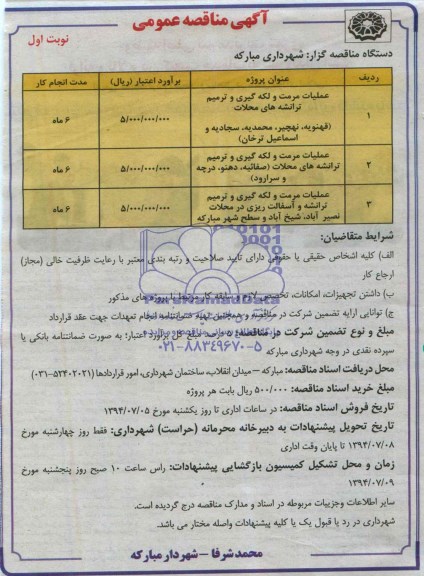 آگهی مناقصه عمومی
نوبت اول
دستگاه مناقصه گزار: شهرداری مبارکه
ردیف عنوان پروژه برآورد اعتبار (ریال) مدت انجام کار
۱ عملیات مرمت و لکه گیری و ترمیم ترانشه های محلات (قهنویه، نهچیر، محمدیه، سجادیه و اسماعیل ترخان) ۵/۰۰۰/۰۰۰/۰۰۰ ۶ ماه
۲ عملیات مرمت و لکه گیری و ترمیم ترانشه های محلات (صفائیه، دهنو، درچه و سرارود) ۵/۰۰۰/۰۰۰/۰۰۰ ۶ ماه
۳ عملیات مرمت و لکه گیری و ترمیم ترانشه و آسفالت ریزی در محلات نصیر آباد، شیخ آباد و سطح شهر مبارکه ۵/۰۰۰/۰۰۰/۰۰۰ ۶ ماه
شرایط متقاضیان:
الف) کلیه اشخاص حقیقی یا حقوقی دارای تایید صلاحیت و رتبه بندی معتبر با رعایت ظرفیت خالی (مجاز)
ارجاع کار
ب) داشتن تجهیزات، امکانات، تخصص لازم و سابقه کار مرتبط با پروژه های مذکور
ج) توانایی ارایه تضمین شرکت در مناقصه و همچنین تهیه ضمانتنامه انجام تعهدات جهت عقد قرارداد
مبلغ و نوع تضمین شرکت در مناقصه: ۵ درصد مبلغ کل برآورد اعتبار؛ به صورت ضمانتنامه بانکی یا
سپرده نقدی در وجه شهرداری مبارکه
۰۲۱-۸۸۳۴۹۶۷۰-۵
محل دریافت اسناد مناقصه: مبارکه – میدان انقلاب، ساختمان شهرداری، امور قراردادها (۵۲۴۰۲۰۲۱-۰۳۱)
مبلغ خرید اسناد مناقصه: ۵۰۰/۰۰۰ ریال بابت هر پروژه
تاریخ فروش اسناد مناقصه: در ساعات اداری تا روز یکشنبه مورخ ۱۳۹۴/۰۷/۰۵
تاریخ تحویل پیشنهادات به دبیرخانه محرمانه (حراست) شهرداری: فقط روز چهارشنبه مورخ
۱۳۹۴/۰۷/۰۸ تا پایان وقت اداری
زمان و محل تشکیل کمیسیون بازگشایی پیشنهادات: راس ساعت ۱۰ صبح روز پنجشنبه مورخ
۱۳۹۴/۰۷/۰۹
سایر اطلاعات وجزییات مربوطه در اسناد و مدارک مناقصه درج گردیده است.
شهرداری در رد یا قبول یک یا کلیه پیشنهادات واصله مختار می باشد.
محمد شرفا – شهردار مبارکه